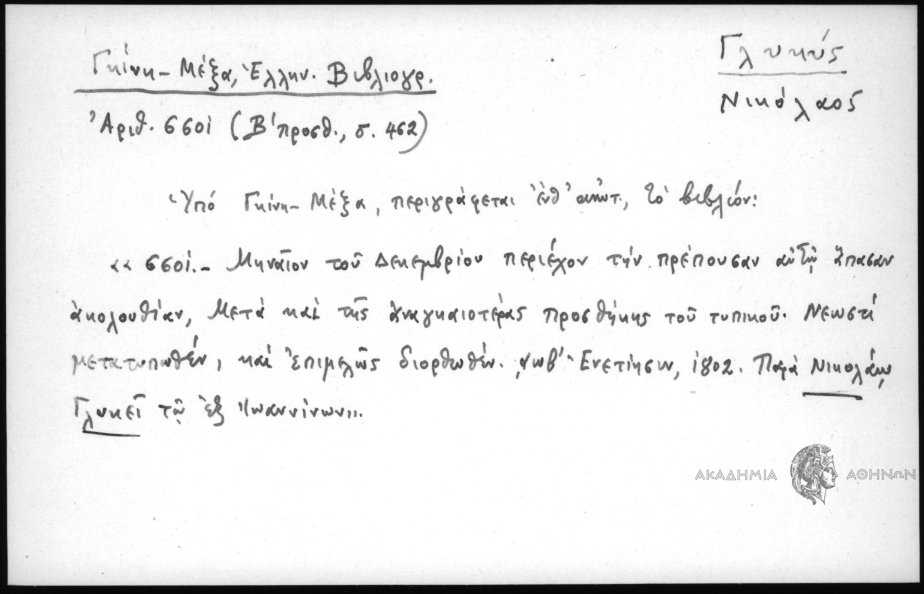 Γλυκύς
Νικόλαος
Γκίνη - Μέξα, Ἑλλην. Βιβλιογρ.
Ἀριθ. 6601 (Β' προσθ., σ. 462)
Ὑπό Γκίνη - Μέξα, περιγράφεται ἐνθ' ἀνωτ., τό βιβλίον:
«6601.- Μηναῖον τοῦ Δεκεμβρίου περιέχον τήν πρέπουσαν αὐτῷ ἅπασαν
ἀκολουθίαν, Μετά καί τῆς ἀναγκαιοτέρας προσθήκης τοῦ τυπικοῦ. Νεωστί
μετατυπωθέν, καί ἐπιμελῶς διορθωθέν. ͵αωβ' Ἐνετίησιν, 1802. Παρά Νικολάῳ
Γλυκεῖ τῷ ἐξ Ἰωαννίνων».
ΑΚΑΔΗΜΙΑ ΑΘΗΝΩΝ